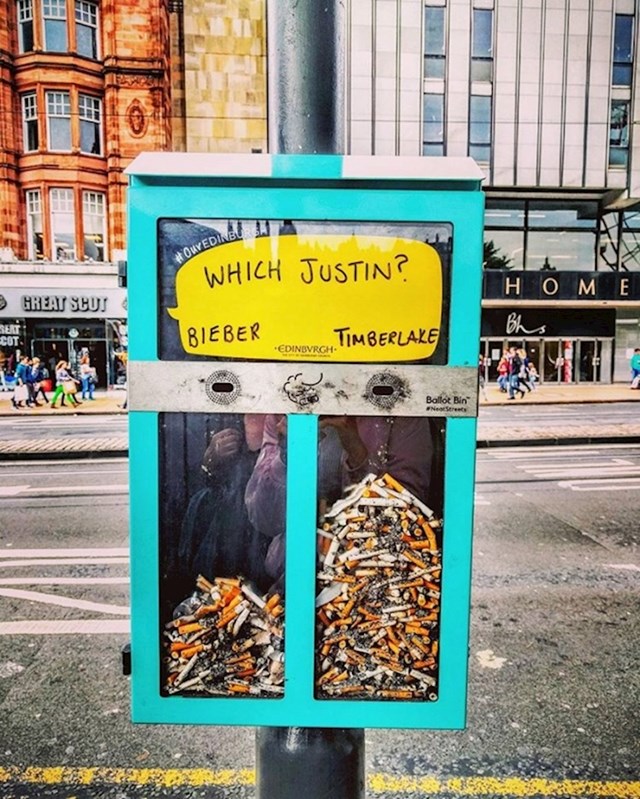 #OURVEDINBURGH
WHICH JUSTIN?
BIEBER
TIMBERLAKE
·EDINBVRGH·
Ballot Bin™
#NeatStreets
GREAT SCOT
HOME
Bhs